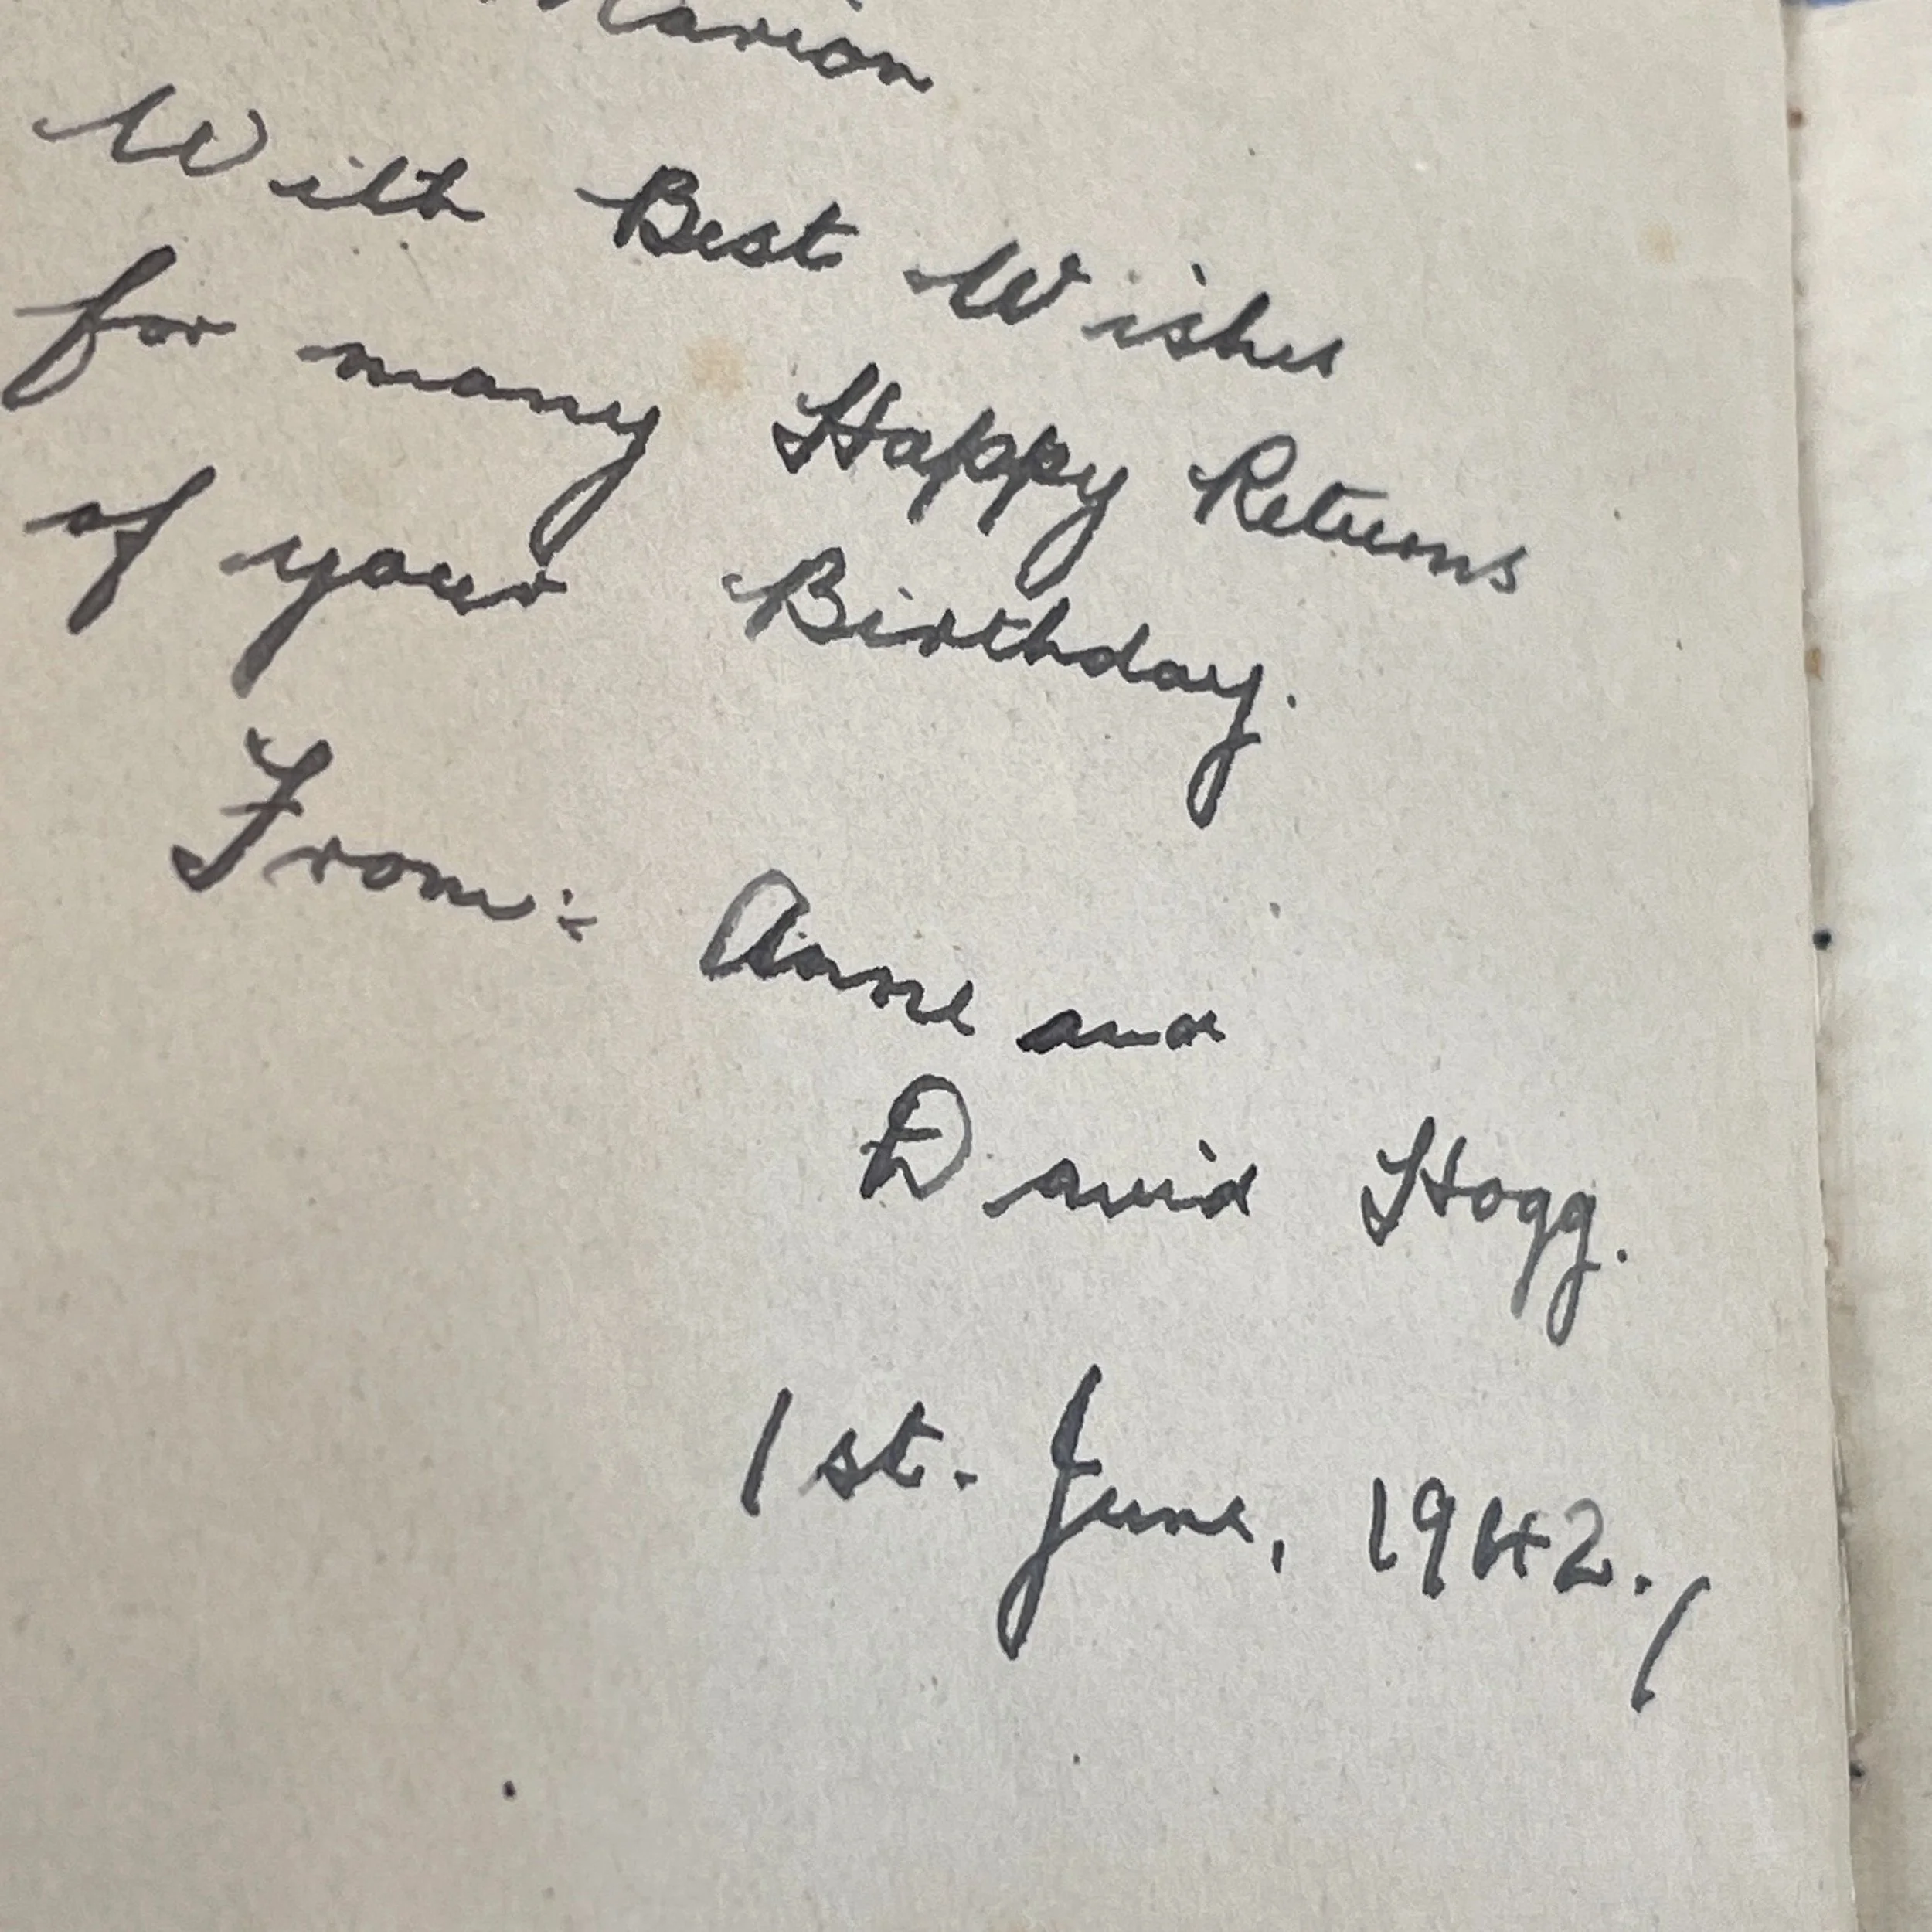 Marion
With Best Wishes
for many Happy Returns
of your Birthday.
From:- Anne and
David Hogg.
1st. June, 1942./